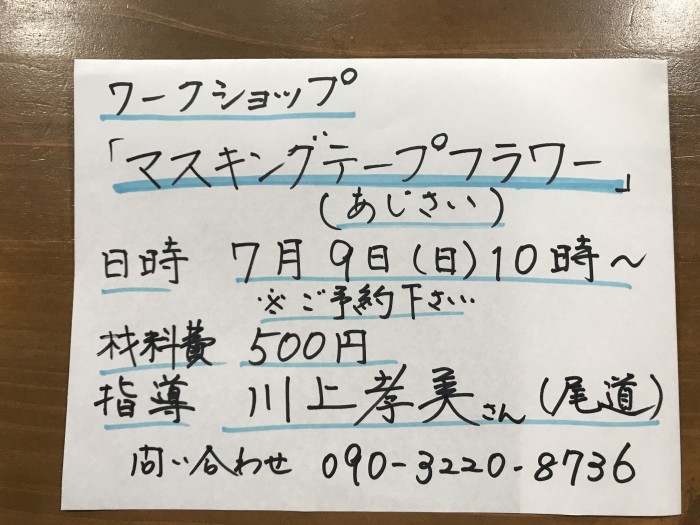 ワークショップ
「マスキングテープフラワー」
(あじさい)
日時 7月9日(日)10時〜
※ご予約下さい
材料費 500円
指導 川上孝美さん(尾道)
問い合わせ 090-3220-8736